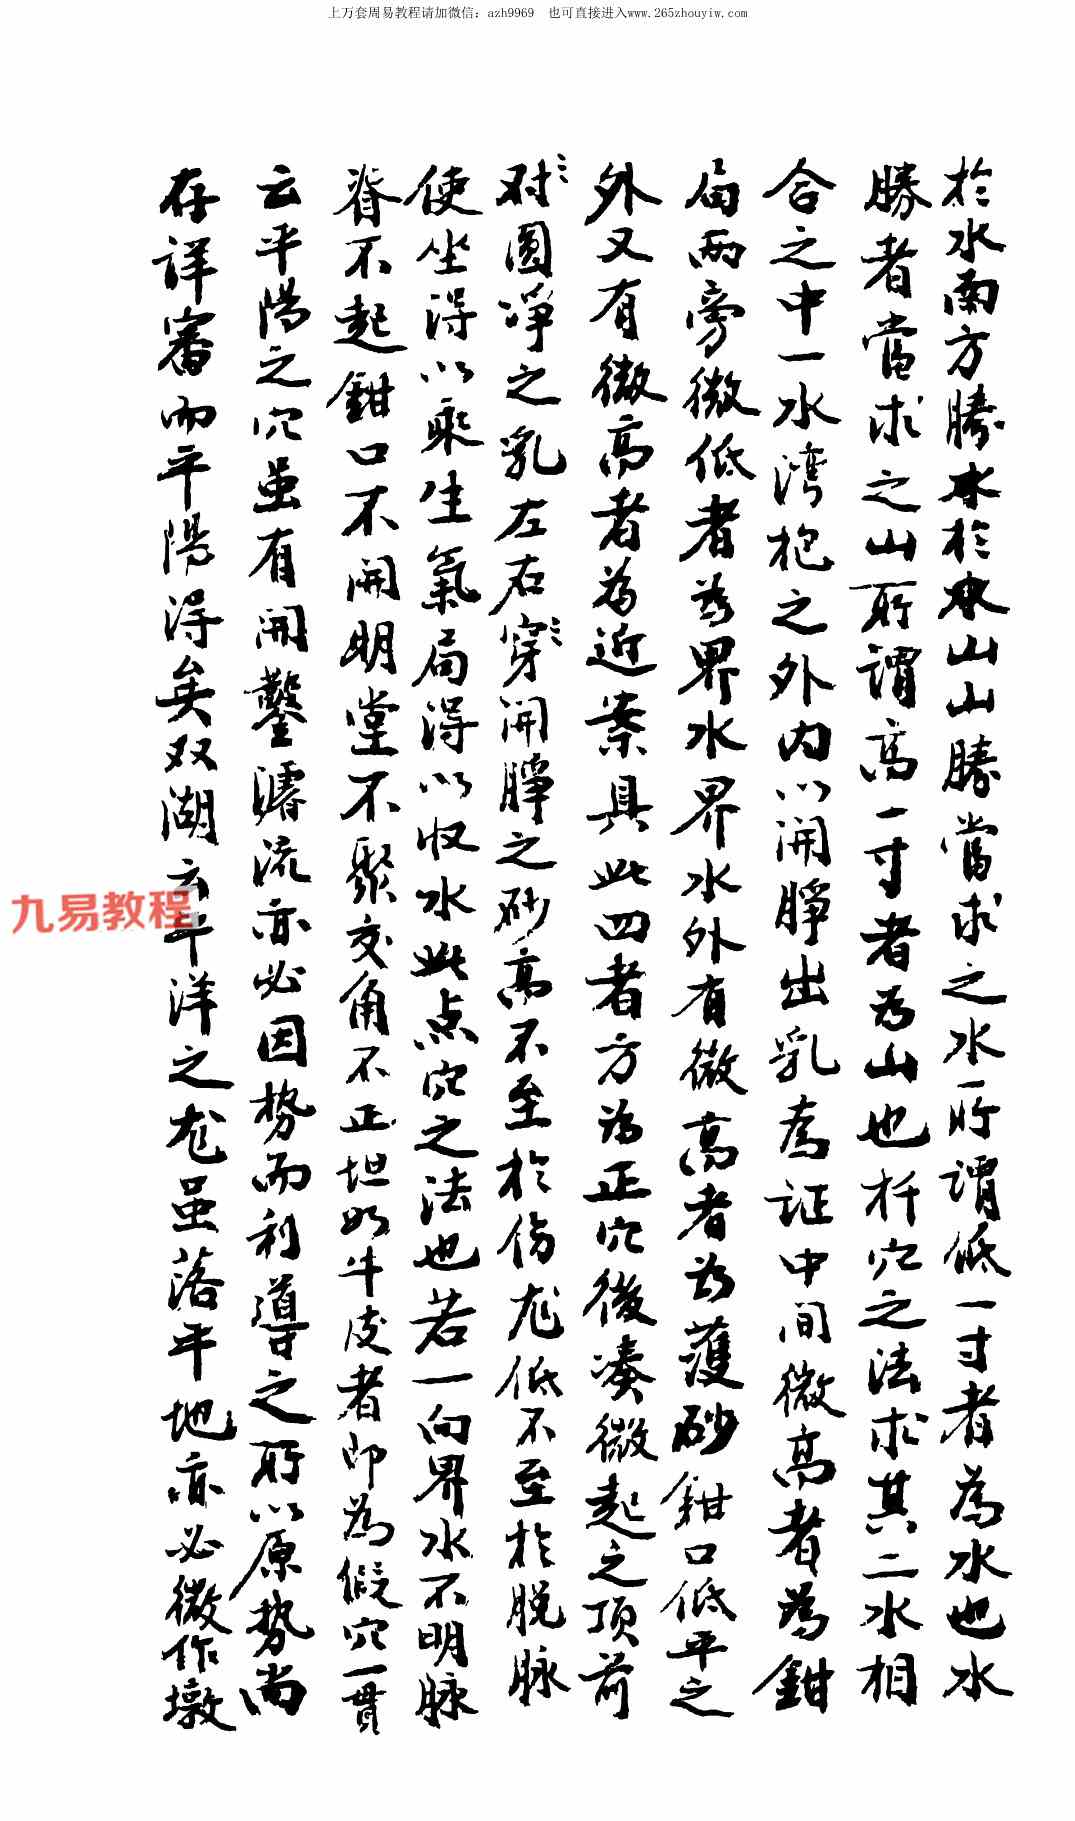 上万套周易教程请加微信：azh9969 也可直接进入www.265zhouyiw.com
於水南方勝水於水山山勝當求之水一所謂低一寸者為水也水
勝者當求之山所謂高一寸者为山也扦穴之法求其二水相
合之中一水湾抱之外内以開睜出乳為证中间微高者為鉗
局两旁微低者为界水界水外有微高者为護砂鉗口低平之
外又有微高者为近案具此四者方为正穴後凑微起之頂前
对圆净之乳左右穿開睜之砂高不至於傷龙低不至於脱脉
使坐得以乘生氣局得以收水此点穴之法也若一向界水不明脉
脊不起鉗口不開明堂不聚交角不正坦如牛皮者即为假穴一貫
云平陽之穴虽有開鑿濬流亦必因势而利導之所以原势尚
存詳審而平陽得矣双湖云平洋之龙虽落平地亦必微作墩
九易教程